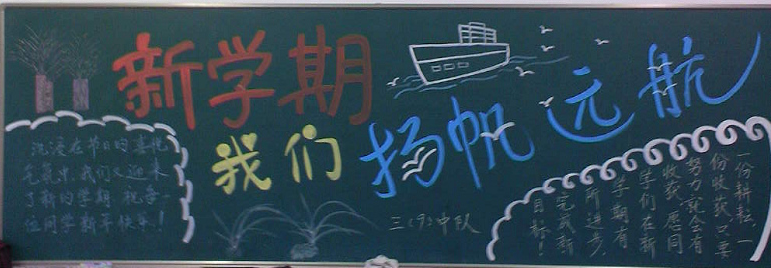 新学期
我们扬帆远航
沉浸在节日的喜悦
气氛中,我们又迎来
了新的学期 祝每一
位同学新年快乐!
三〈9〉中队
一份耕耘,一
份收获只要
努力就会有
收获愿同
学们在新
学期有
所进步,
完成新
目标!